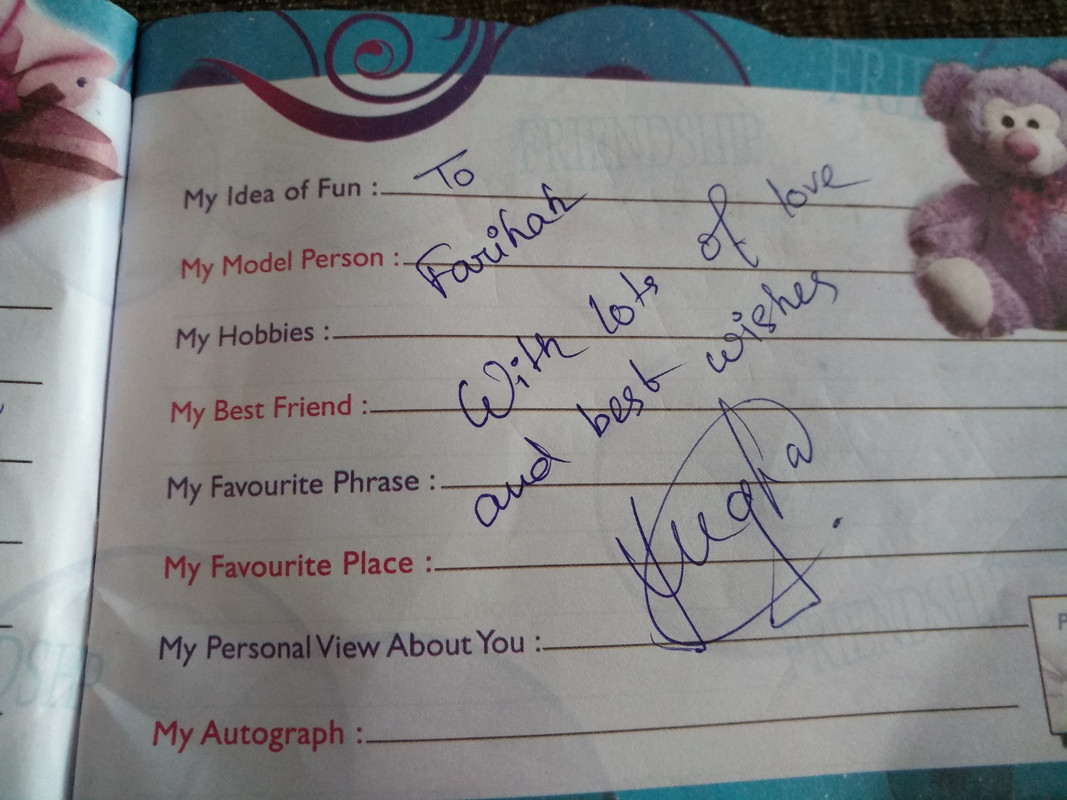 FRIE
FRIENDSHIP
My Idea of Fun : To
My Model Person : Farihah
My Hobbies : With lots of love
My Best Friend : and best wishes
My Favourite Phrase :
My Favourite Place :
My Personal View About You :
My Autograph :
FRIENDSHIP
DSHIP
P